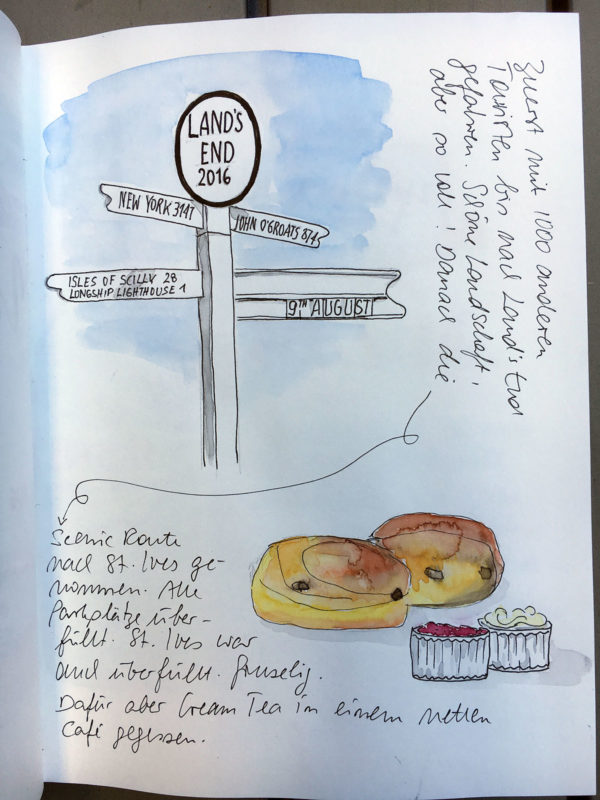 LAND'S
END
2016
NEW YORK 3147
JOHN O'GROATS 874
ISLES OF SCILLY 28
LONGSHIP LIGHTHOUSE 1
9TH AUGUST
Zuerst mit 1000 anderen
Touristen bis nach Land's End
gefahren. Schöne Landschaft,
aber so voll! Danach die
Scenic Route
nach St. Ives ge-
nommen. Alle
Parkplätze über-
füllt. St. Ives war
auch überfüllt. Gruselig.
Dafür aber Cream Tea in einem netten
Café gegessen.